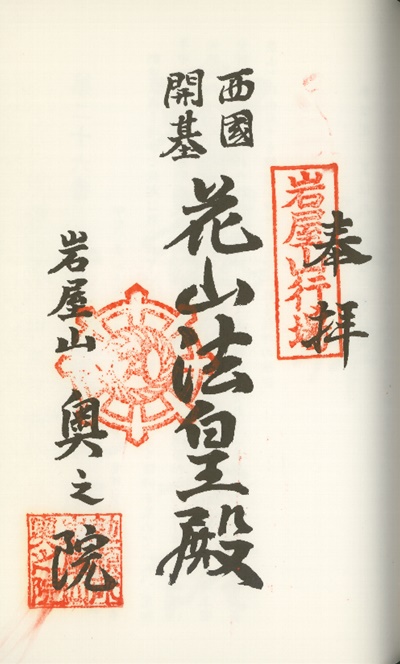 奉拝
岩屋山行場
西國
開基
花山法皇殿
岩屋山 奥之院